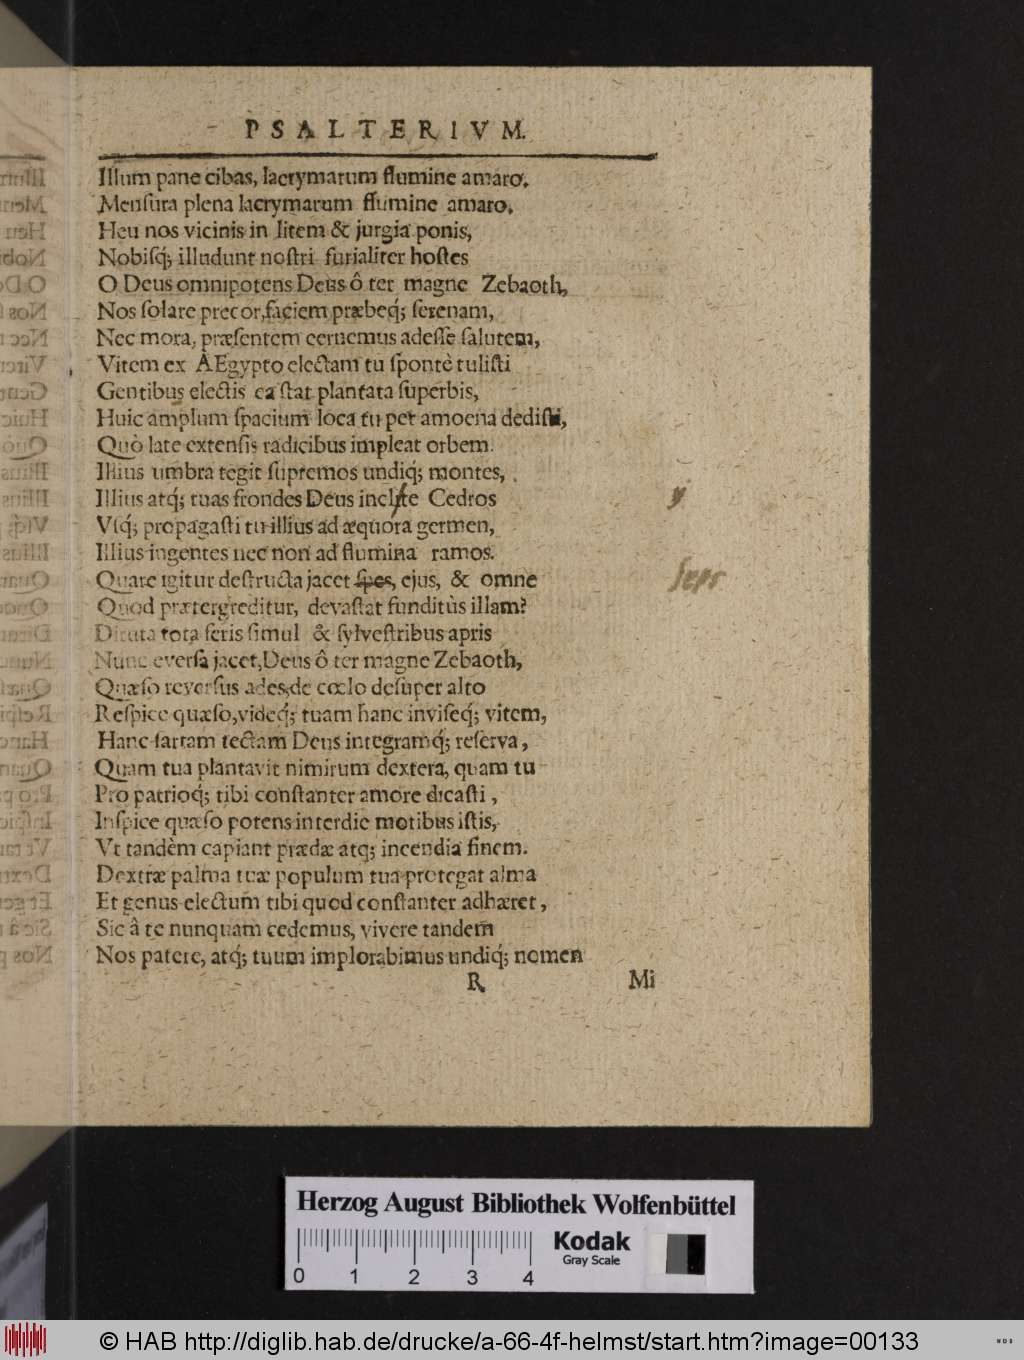 PSALTERIVM.
Illum pane cibas, lacrymarum flumine amaro.
Menſura plena lacrymarum flumine amaro.
Heu nos vicinis in litem & jurgia ponis,
Nobiſq́; illudunt noſtri furialiter hoſtes
O Deus omnipotens Deus ô ter magne Zebaoth,
Nos ſolare precor, faciem præbeq́; ſerenam,
Nec mora, præſentem cernemus adeſſe ſalutem,
Vitem ex AEgypto electam tu ſpontè tuliſti
Gentibus electis ea ſtat plantata ſuperbis,
Huic amplum ſpacium loca tu per amoena dediſti,
Quò late extenſis radicibus impleat orbem.
Illius umbra tegit ſupremos undiq́; montes,
Illius atq́; tuas frondes Deus inclyte Cedros
y
Vſq́; propagaſti tu illius ad æquora germen,
Illius ingentes nec non ad flumina ramos.
Quare igitur deſtructa jacet ſpes, ejus, & omne
ſeps
Quod prætergreditur, devaſtat funditùs illam?
Diruta tota feris ſimul & ſylveſtribus apris
Nunc everſa jacet, Deus ô ter magne Zebaoth,
Quæſo reverſus ades, de cœlo deſuper alto
Reſpice quæſo, videq́; tuam hanc inviſeq́; vitem,
Hanc ſartam tectam Deus integramq́; reſerva,
Quam tua plantavit nimirum dextera, quam tu
Pro patrioq́; tibi conſtanter amore dicaſti,
Inſpice quæſo potens interdic motibus iſtis,
Vt tandèm capiant prædæ atq; incendia finem.
Dextræ palma tuæ populum tua protegat alma
Et genus electum tibi quod conſtanter adhæret,
Sic â te nunquam cedemus, vivere tandem
Nos patere, atq́; tuum implorabimus undiq́; nomen
R Mi
Herzog August Bibliothek Wolfenbüttel
0 1 2 3 4
Kodak
Gray Scale
© HAB http://diglib.hab.de/drucke/a-66-4f-helmst/start.htm?image=00133